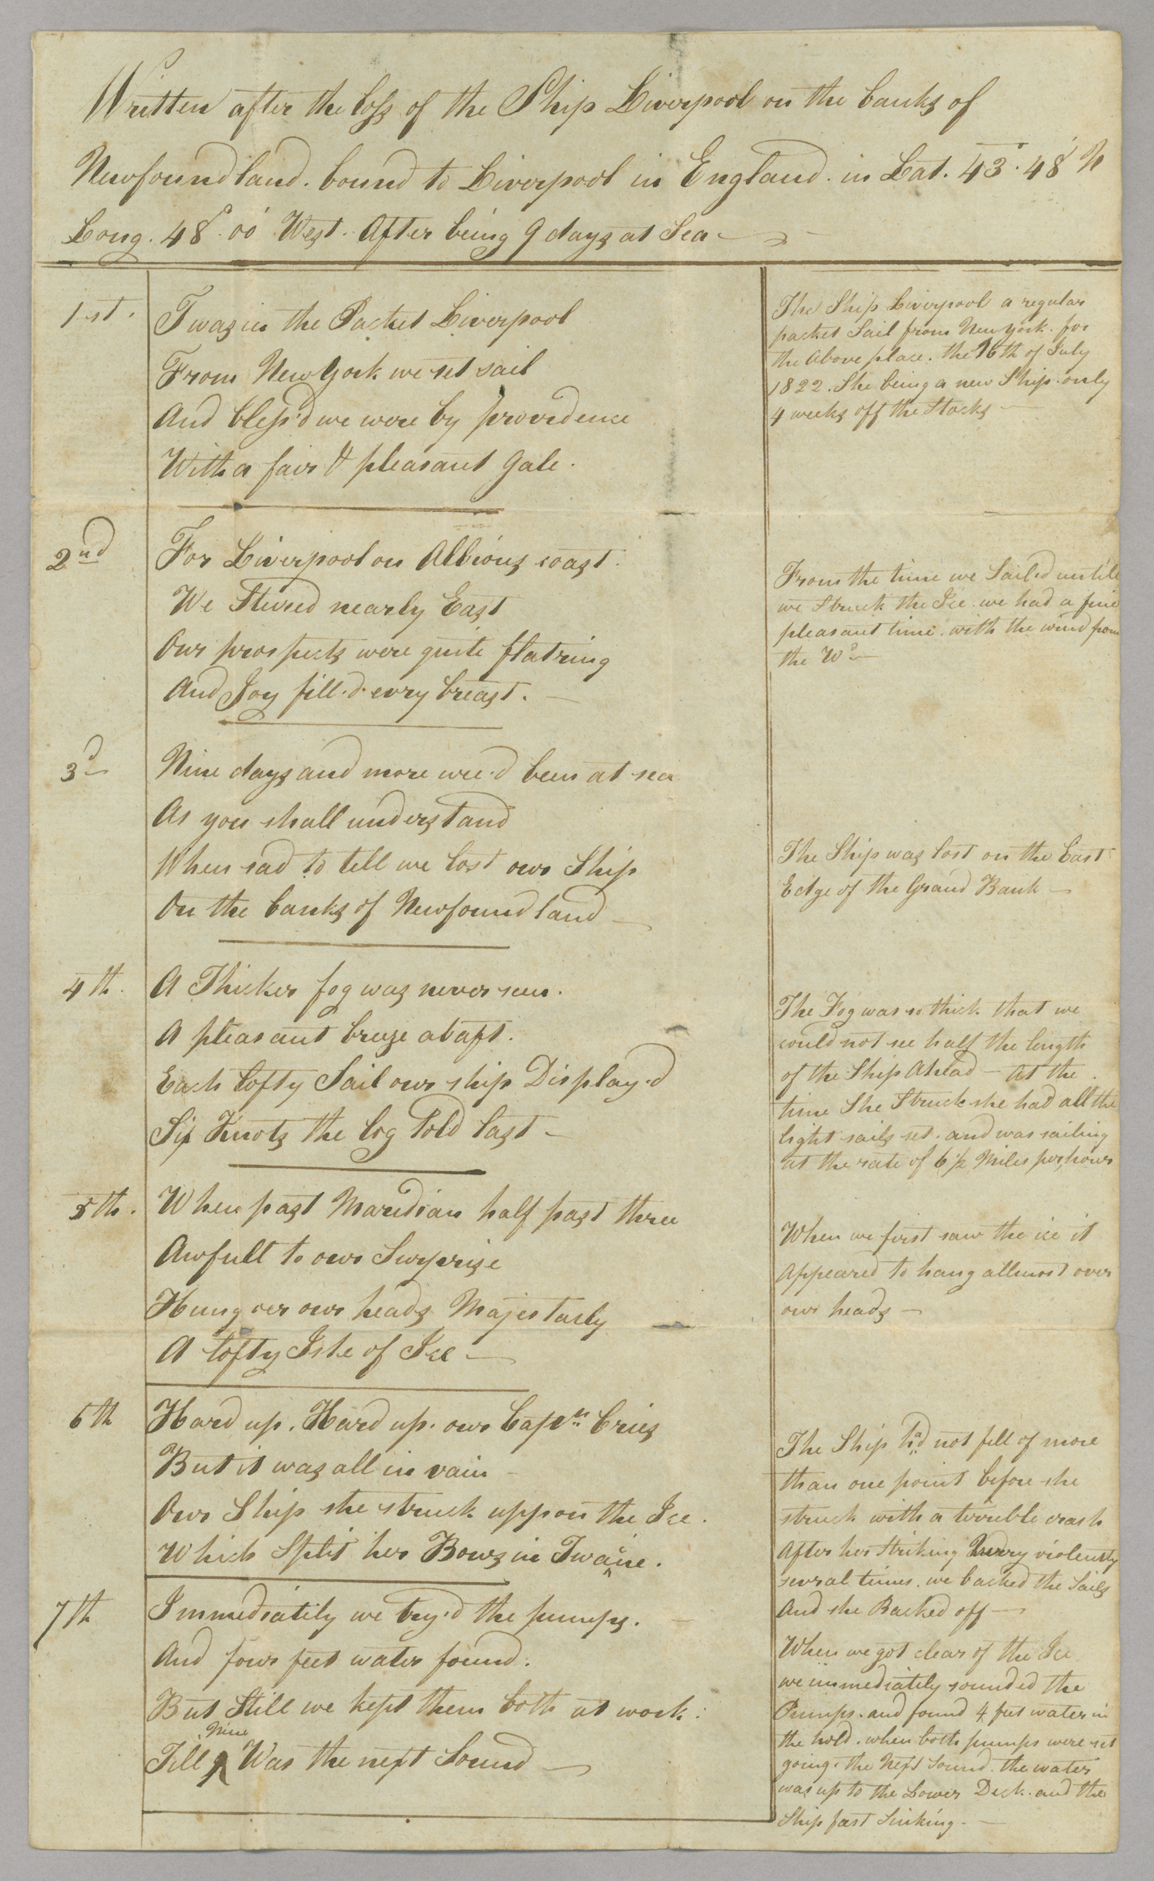 Written after the loss of the Ship Liverpool on the banks of
Newfoundland. bound to Liverpool in England. in Lat. 43°. 48' N
Long. 48°. 00' West. After being 9 days at Sea —
1st.
Twas in the Packet Liverpool
From New York we set sail
And bless'd we were by providence
With a fair & pleasant Gale.
The Ship Liverpool a regular
packet Sail from New York. for
the Above place. the 16th of July
1822. She being a new Ship. only
4 weeks off the Stocks —
2nd
For Liverpool on Albions coast.
We Stered nearly East
Our prospects were quite flatring
And Joy fill.d. evry breast. —
From the time we Sail.d untile
we Struck the Ice. we had a fine
pleasant time. with the wind from
the Wd —
3d
Nine days and more wee.d been at sea
As you shall understand
When sad to tell we lost our Ship
On the banks of Newfoundland —
The Ship was lost on the East
Edge of the Grand Bank —
4th.
A Thicker fog was never seen.
A pleasant breeze abaft.
Each lofty Sail our ship Display.d
Six Knots the log Told last —
The Fog was so thick that we
could not see half the length
of the Ship Ahead — At the
time She Struck she had all the
light sails set. and was sailing
at the rate of 6 1/2 Miles per hour
5th.
When past Maridian half past three
Awfull to our Surprise
Hung oer our heads Majestacly
A lofty Isle of Ice —
When we first saw the ice it
Appeared to hang allmost over
our heads —
6th
Hard up. Hard up. our Captn Cries
But it was all in vain —
Our Ship she struck uppon the Ice.
Which Split her Bows in Twaine.
The Ship had not fell of more
than one point before she
struck with a terrible crash
After her Striking very violently
several times. we backed the Sails
And she Backed off —
7th
Immediatily we try.d the pumps. —
And four feet water found.
But Still we kept them both at work:
Nine
Till ^ Was the next Sound —
When we got clear of the Ice
we immediately sounded the
Pumps. and found 4 feet water in
the hold. when both pumps were set
going. the Next Sound. the water
was up to the Lower Deck. and the
Ship fast Sinking. —